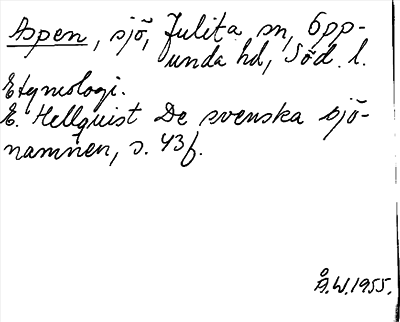 Aspen, sjö, Julita sn, Opp-
unda hd, Söd. l.
Etymologi.
E. Hellquist De svenska sjö-
namnen, s. 43f.
Å.W.1955.